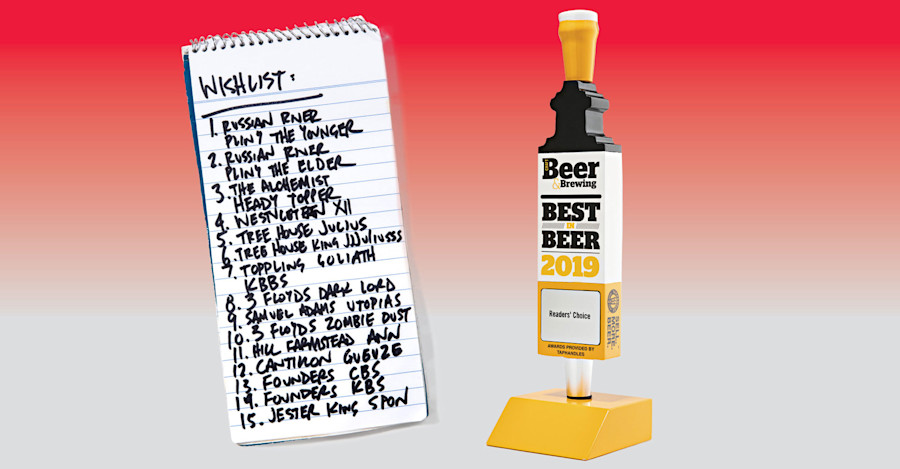 WISHLIST:
1. RUSSIAN RIVER
PLINY THE YOUNGER
2. RUSSIAN RIVER
PLINY THE ELDER
3. THE ALCHEMIST
HEADY TOPPER
4. WESTVLETEEN XII
5. TREE HOUSE JULIUS
6. TREE HOUSE KING JJJULIUSSS
7. TOPPLING GOLIATH
KBBS
8. 3 FLOYDS DARK LORD
9. SAMUEL ADAMS UTOPIAS
10. 3 FLOYDS ZOMBIE DUST
11. HILL FARMSTEAD ANN
12. CANTILLON GUEUZE
13. FOUNDERS CBS
14. FOUNDERS KBS
15. JESTER KING SPON
Beer
& Brewing
BEST
IN
BEER
2019
Readers' Choice
AWARDS PROVIDED BY
TAPHANDLES
SELL
MORE
BEER